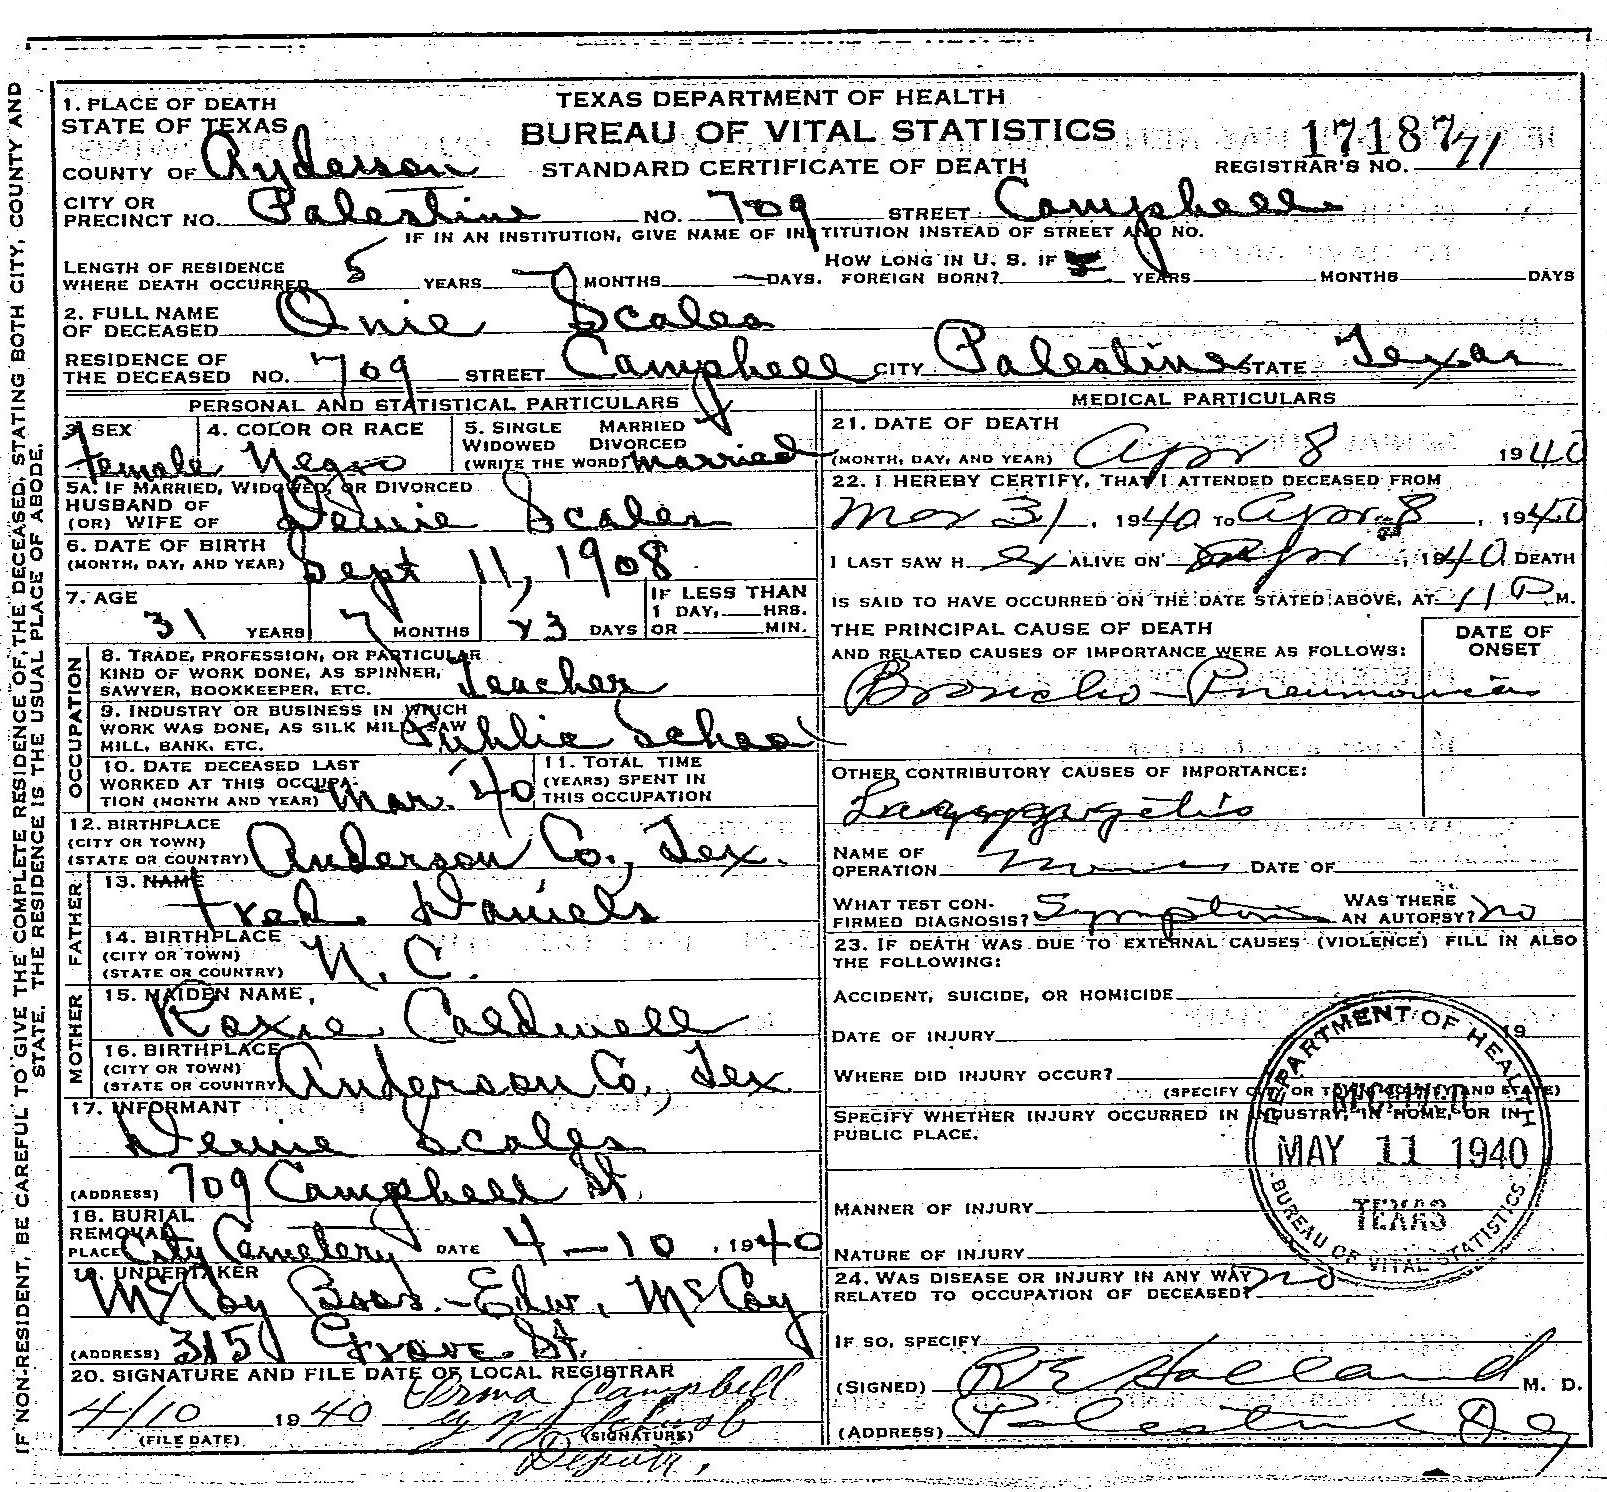 TEXAS DEPARTMENT OF HEALTH
BUREAU OF VITAL STATISTICS
STANDARD CERTIFICATE OF DEATH
17187
REGISTRAR'S NO. 71
1. PLACE OF DEATH
STATE OF TEXAS
COUNTY OF Anderson
CITY OR PRECINCT NO. Palestine NO. 709 STREET Campbell
IF IN AN INSTITUTION, GIVE NAME OF INSTITUTION INSTEAD OF STREET AND NO.
LENGTH OF RESIDENCE WHERE DEATH OCCURRED 5 YEARS 7 MONTHS — DAYS. HOW LONG IN U. S. IF FOREIGN BORN? YEARS MONTHS DAYS
2. FULL NAME OF DECEASED Onie Scales
RESIDENCE OF THE DECEASED NO. 709 STREET Campbell CITY Palestine STATE Texas
PERSONAL AND STATISTICAL PARTICULARS
3. SEX Female
4. COLOR OR RACE Negro
5. SINGLE MARRIED WIDOWED DIVORCED (WRITE THE WORD) Married
5A. IF MARRIED, WIDOWED, OR DIVORCED
HUSBAND OF (OR) WIFE OF Dennie Scales
6. DATE OF BIRTH (MONTH, DAY, AND YEAR) Sept 11, 1908
7. AGE 31 YEARS 7 MONTHS 23 DAYS IF LESS THAN 1 DAY, HRS. OR MIN.
OCCUPATION
8. TRADE, PROFESSION, OR PARTICULAR KIND OF WORK DONE, AS SPINNER, SAWYER, BOOKKEEPER, ETC. Teacher
9. INDUSTRY OR BUSINESS IN WHICH WORK WAS DONE, AS SILK MILL, SAW MILL, BANK, ETC. Public School
10. DATE DECEASED LAST WORKED AT THIS OCCUPATION (MONTH AND YEAR) Mar. 40
11. TOTAL TIME (YEARS) SPENT IN THIS OCCUPATION
12. BIRTHPLACE (CITY OR TOWN) (STATE OR COUNTRY) Anderson Co., Tex.
FATHER
13. NAME Fred Daniels
14. BIRTHPLACE (CITY OR TOWN) (STATE OR COUNTRY) N. C.
MOTHER
15. MAIDEN NAME, Roxie Caldwell
16. BIRTHPLACE (CITY OR TOWN) (STATE OR COUNTRY) Anderson Co., Tex
17. INFORMANT Dennie Scales
(ADDRESS) 709 Campbell St.
18. BURIAL REMOVAL PLACE City Cemetery DATE 4-10, 1940
19. UNDERTAKER McCoy Bros.-Edw. McCoy
(ADDRESS) 315 Grove St.
20. SIGNATURE AND FILE DATE OF LOCAL REGISTRAR
4/10 1940 Erma Campbell
(FILE DATE) (SIGNATURE)
Deputy.
MEDICAL PARTICULARS
21. DATE OF DEATH (MONTH, DAY, AND YEAR) Apr 8 1940
22. I HEREBY CERTIFY, THAT I ATTENDED DECEASED FROM
Mar 31, 1940 TO Apr. 8, 1940
I LAST SAW H er ALIVE ON Apr, 1940 DEATH
IS SAID TO HAVE OCCURRED ON THE DATE STATED ABOVE, AT 11 P M.
THE PRINCIPAL CAUSE OF DEATH AND RELATED CAUSES OF IMPORTANCE WERE AS FOLLOWS:
DATE OF ONSET
Broncho-Pneumonia
OTHER CONTRIBUTORY CAUSES OF IMPORTANCE:
NAME OF OPERATION DATE OF
WHAT TEST CONFIRMED DIAGNOSIS? Symptoms WAS THERE AN AUTOPSY? no
23. IF DEATH WAS DUE TO EXTERNAL CAUSES (VIOLENCE) FILL IN ALSO THE FOLLOWING:
ACCIDENT, SUICIDE, OR HOMICIDE
DATE OF INJURY 19
WHERE DID INJURY OCCUR?
(SPECIFY CITY OR TOWN, COUNTY AND STATE)
SPECIFY WHETHER INJURY OCCURRED IN INDUSTRY, IN HOME, OR IN PUBLIC PLACE.
MANNER OF INJURY
NATURE OF INJURY
24. WAS DISEASE OR INJURY IN ANY WAY RELATED TO OCCUPATION OF DECEASED? no
IF SO, SPECIFY
(SIGNED) R E Holland M. D.
(ADDRESS) Palestine
DEPARTMENT OF HEALTH
RECEIVED
MAY 11 1940
TEXAS
BUREAU OF VITAL STATISTICS
IF NON-RESIDENT, BE CAREFUL TO GIVE THE COMPLETE RESIDENCE OF THE DECEASED, STATING BOTH CITY, COUNTY AND
STATE. THE RESIDENCE IS THE USUAL PLACE OF ABODE.